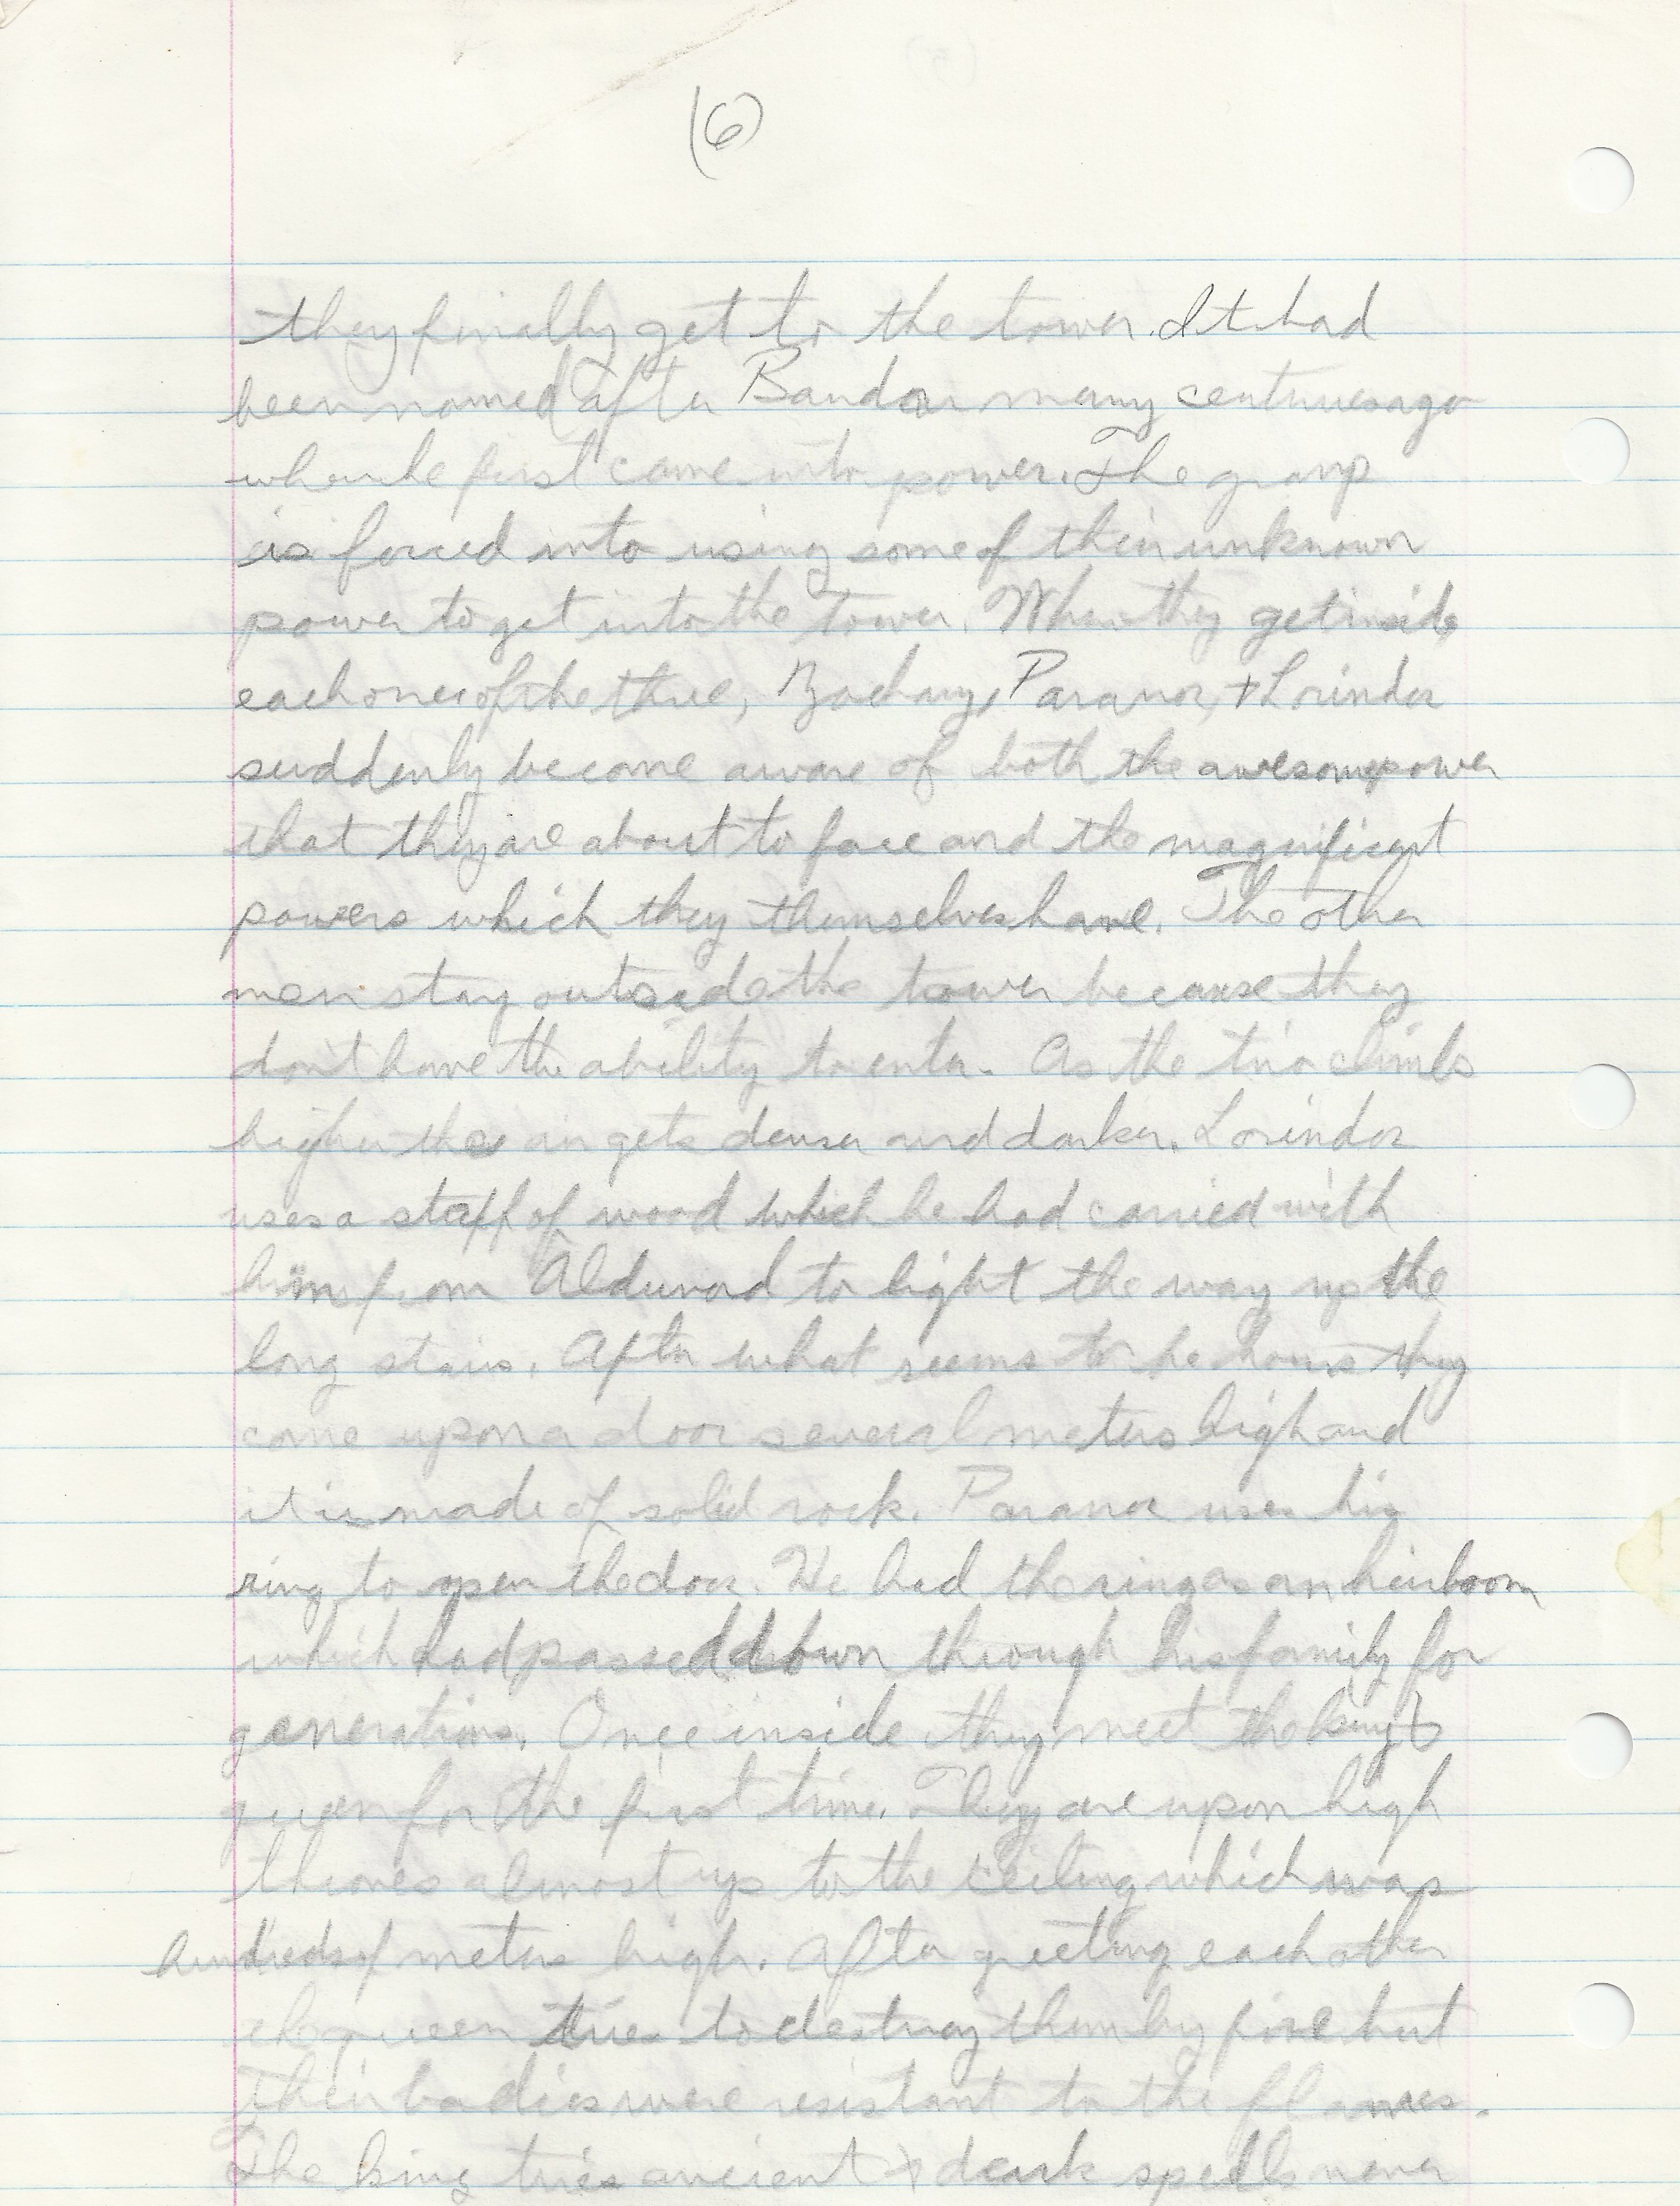 (6)
they finally get to the tower. It had
been named after Bandor many centuries ago
when he first came into power. The group
is forced into using some of their unknown
power to get into the tower. When they get inside
each one of the three, Zachary, Paranor, + Lorindor
suddenly become aware of both the awesome power
that they are about to face and the magnificent
powers which they themselves have. The other
men stay outside the tower because they
don't have the ability to enter. As the trio climbs
higher the air gets denser and darker. Lorindor
uses a staff of wood which he had carried with
him from Aldurod to light the way up the
long stairs. After what seems to be hours they
come upon a door several meters high and
it is made of solid rock. Paranor uses his
ring to open the door. He had the ring as an heirloom
which had passed down through his family for
generations. Once inside they meet the king &
queen for the first time. They are upon high
thrones almost up to the ceiling which was
hundreds of meters high. After greeting each other
the queen tries to destroy them by fire but
their bodies were resistant to the flames.
The king tries ancient + dark spells never